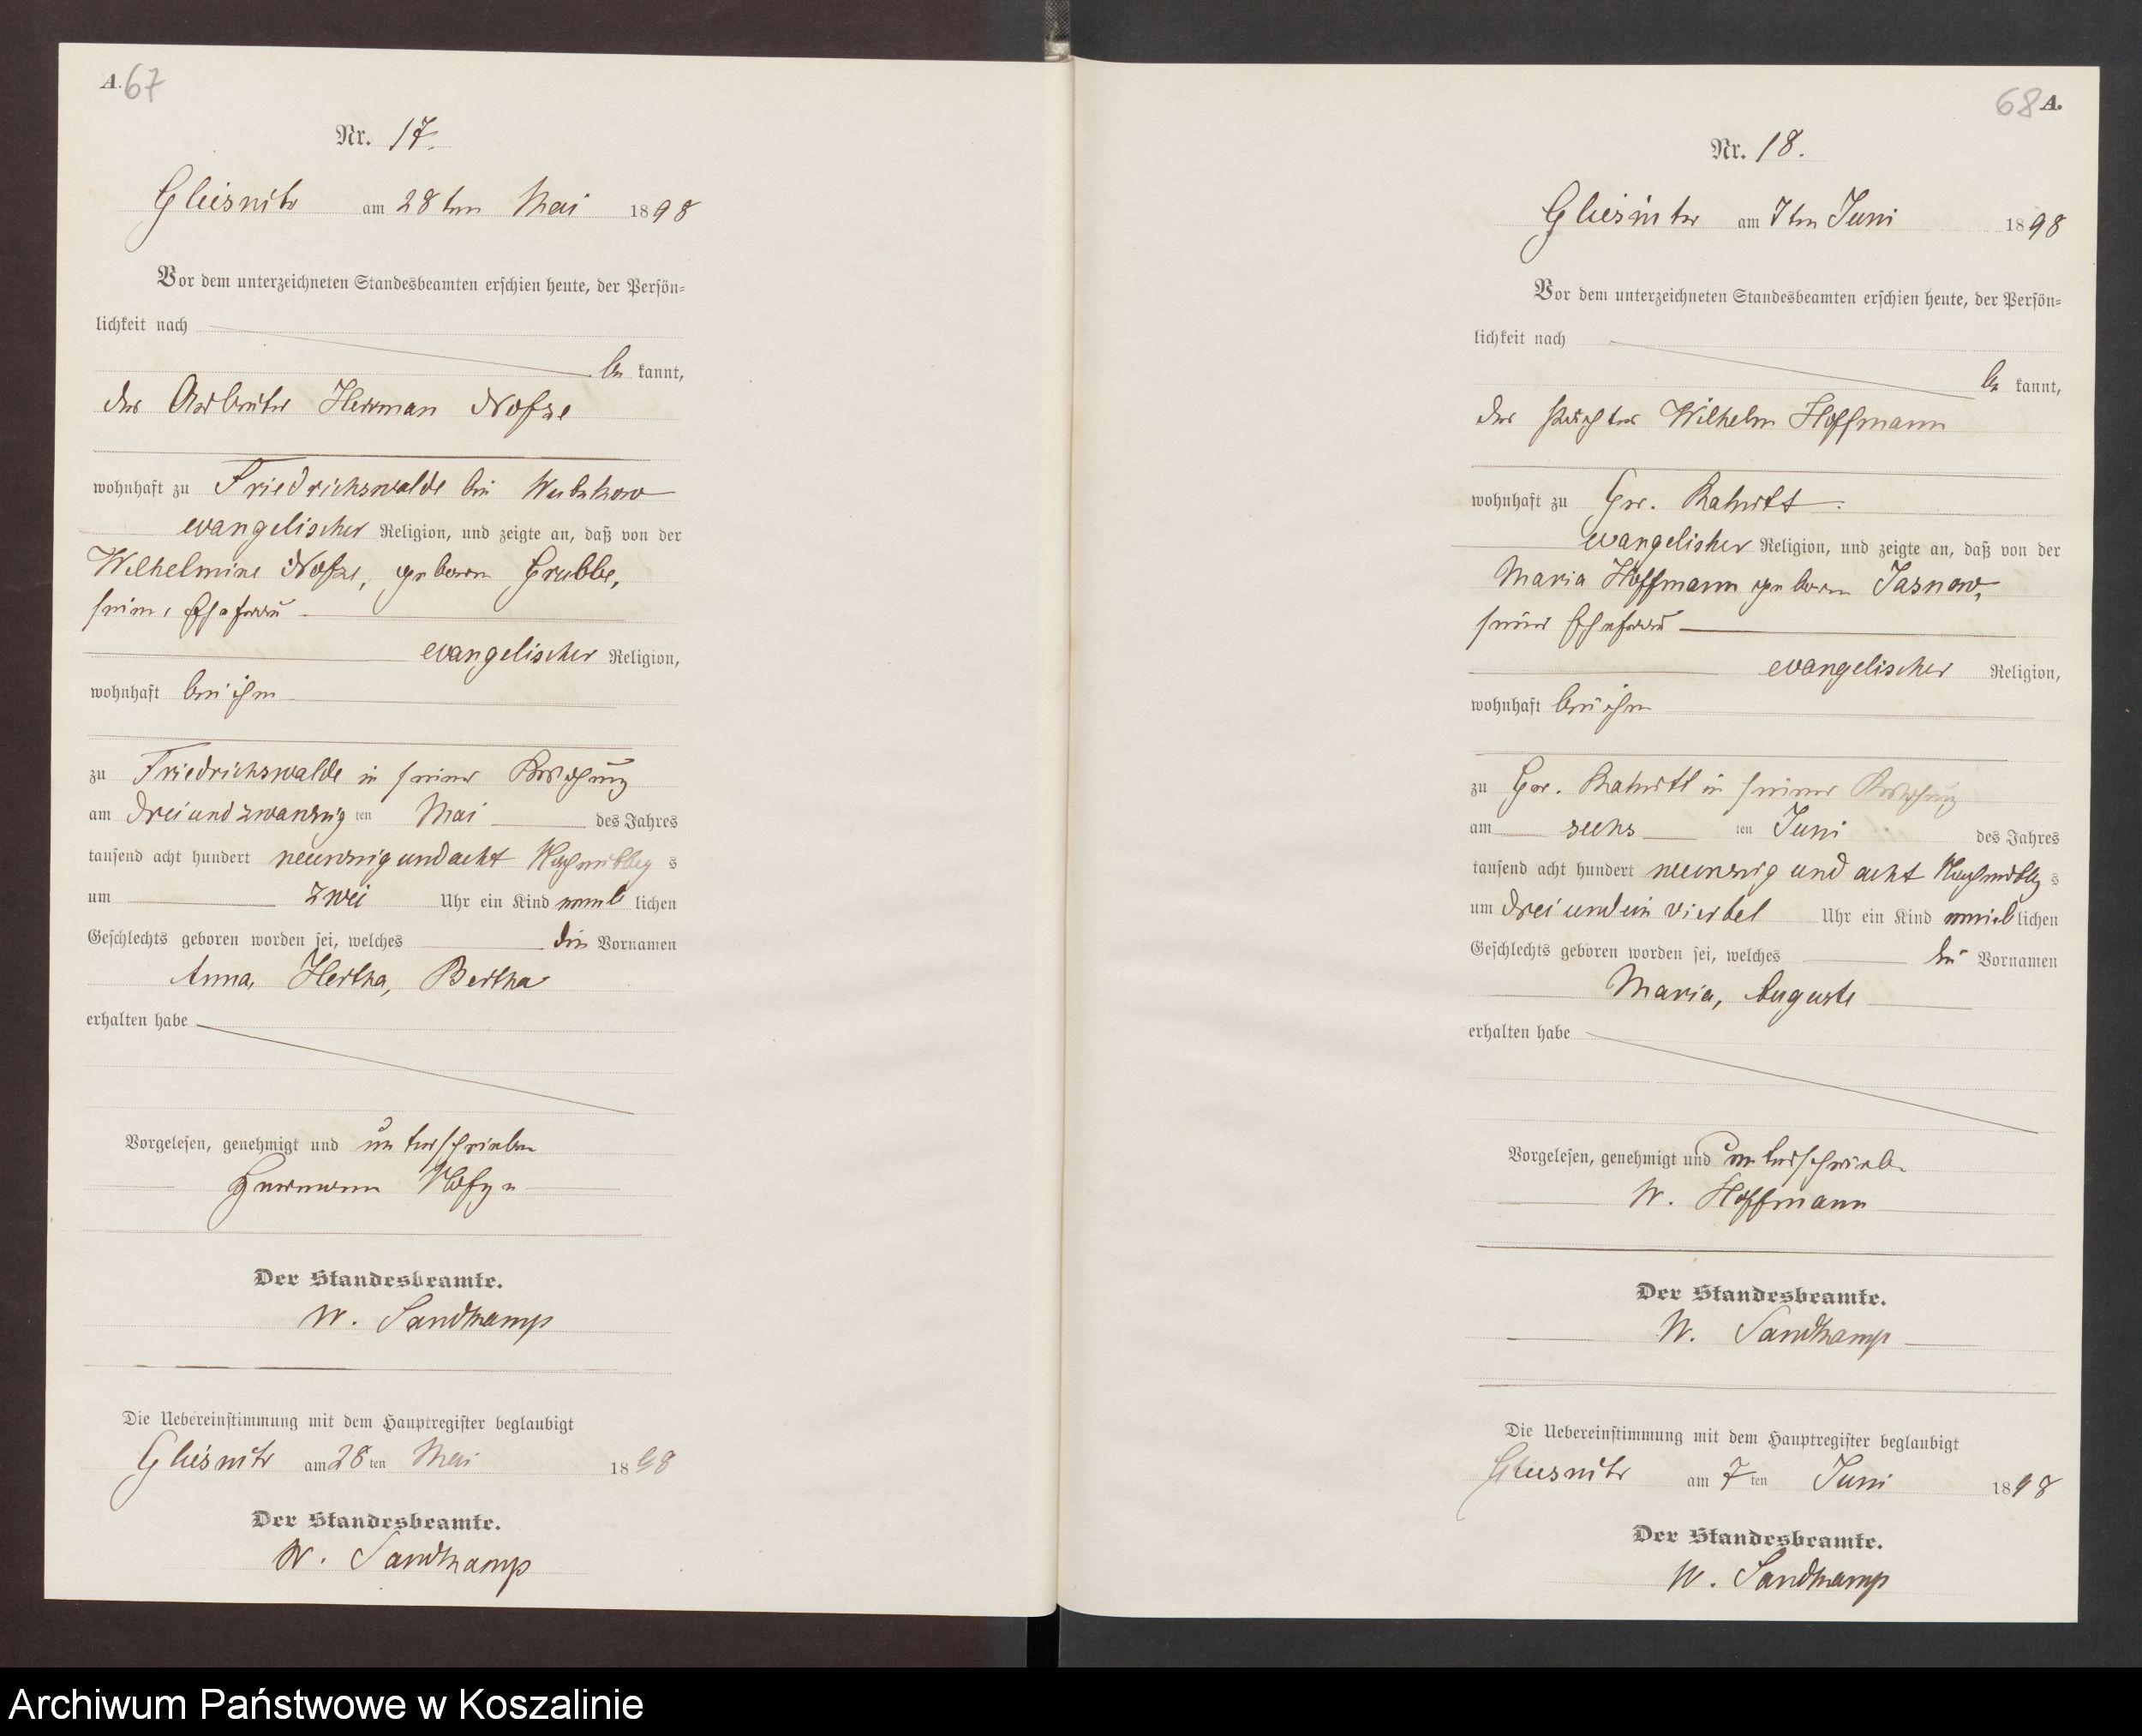 A. 67
Nr. 17.
Gliesnitz am 28ten Mai 1898
Vor dem unterzeichneten Standesbeamten erschien heute, der Persön-
lichkeit nach
be kannt,
der Arbeiter Herrman
wohnhaft zu Friedrichswalde bei
evangelischer Religion, und zeigte an, daß von der
Wilhelmine geborene Grubbe,
seiner Ehefrau
evangelischer Religion,
wohnhaft bei ihm
zu Friedrichswalde in seiner Wohnung
am dreiundzwanzig ten Mai des Jahres
tausend acht hundert neunzig und acht Nachmittag s
um zwei Uhr ein Kind weib lichen
Geschlechts geboren worden sei, welches die Vornamen
Anna, Hertha, Bertha
erhalten habe
Vorgelesen, genehmigt und unterschrieben
Hermann
Der Standesbeamte.
W. Sandkamp
Die Uebereinstimmung mit dem Hauptregister beglaubigt
Gliesnitz am 28 ten Mai 1898
Der Standesbeamte.
W. Sandkamp
68 A.
Nr. 18.
Gliesnitz am 7ten Juni 1898
Vor dem unterzeichneten Standesbeamten erschien heute, der Persön-
lichkeit nach
be kannt,
der Pächter Wilhelm Hoffmann
wohnhaft zu Gr. Rakitt
evangelischer Religion, und zeigte an, daß von der
Maria Hoffmann geborene Jasnow,
seiner Ehefrau
evangelischer Religion,
wohnhaft bei ihm
zu Gr. Rakitt in seiner Wohnung
am sechs ten Juni des Jahres
tausend acht hundert neunzig und acht Nachmittag s
um drei und ein viertel Uhr ein Kind weib lichen
Geschlechts geboren worden sei, welches die Vornamen
Maria, Auguste
erhalten habe
Vorgelesen, genehmigt und unterschrieben
W. Hoffmann
Der Standesbeamte.
W. Sandkamp
Die Uebereinstimmung mit dem Hauptregister beglaubigt
Gliesnitz am 7 ten Juni 1898
Der Standesbeamte.
W. Sandkamp
Archiwum Państwowe w Koszalinie